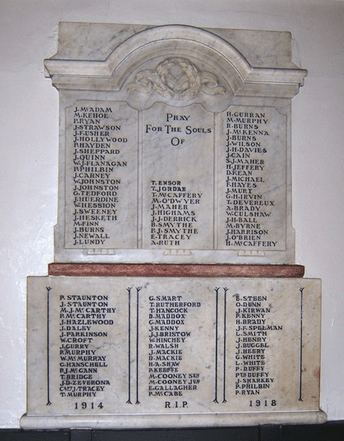 J. McADAM
M. KEHOE
P. RYAN
J. STRAWSON
J. FUSHER
J. HOLLYWOOD
P. HAYDEN
J. SHEPPARD
J. QUINN
W. J. FLANAGAN
P. PHILBIN
J. CARNEY
W. JOHNSTON
J. JOHNSTON
G. TEDFORD
J. HUERDINE
V. HESSION
J. SWEENEY
J. HESKETH
M. FINN
J. BURNS
J. NEWALL
J. LUNDY
PRAY
FOR THE SOULS
OF
T. ENSOR
T. JORDAN
T. McCAFFERY
M. O'DWYER
J. MAHER
J. HIGHAMS
J. J. DERRICK
B. SMYTHE
R. J. SMYTHE
E. TRACEY
A. RUTH
H. CURRAN
M. MURPHY
R. BURNS
J. McKENNA
J. BURNS
J. WILSON
J. H. DAVIES
J. CAIN
S. J. MAHER
H. JEFFERY
D. KEAN
J. MICHAEL
F. HAYES
J. MURT
G. HEVEY
T. DEVEREUX
A. BRADY
W. CULSHAW
J. H. BALL
M. BYRNE
J. HARRISON
J. O'BRIEN
H. McCAFFERY
P. STAUNTON
J. STAUNTON
M. J. McCARTHY
P. McCARTHY
J. HAZLEWOOD
J. DALEY
J. PARKINSON
W. CROFT
J. CURRY
P. MURPHY
W. McMURRAY
G. HANSCHELL
P. J. McCANN
T. BRIDGE
J. D. ZEVERONA
J. TRACEY
T. MURPHY
G. SMART
T. RUTHERFORD
T. HANCOCK
B. MADDOX
G. MADDOX
J. KENNY
J. J. BRISTOW
W. HINCHEY
R. WALSH
J. MACKIE
D. MACKIE
H. A. SHAW
P. KEEFFE
M. COONEY SEN
M. COONEY JUN
E. GALLAGHER
P. McCABE
E. STEEN
O. DUNN
J. KIRWAN
P. KENNY
H. BRADY
J. F. SPELMAN
L. SMITH
J. HENRY
J. DUGGEL
J. HEERY
G. WHITE
L. WHITE
P. DUFFY
P. DUFFY
J. SHARKEY
P. PHILBIN
P. RYAN
1914 R.I.P. 1918